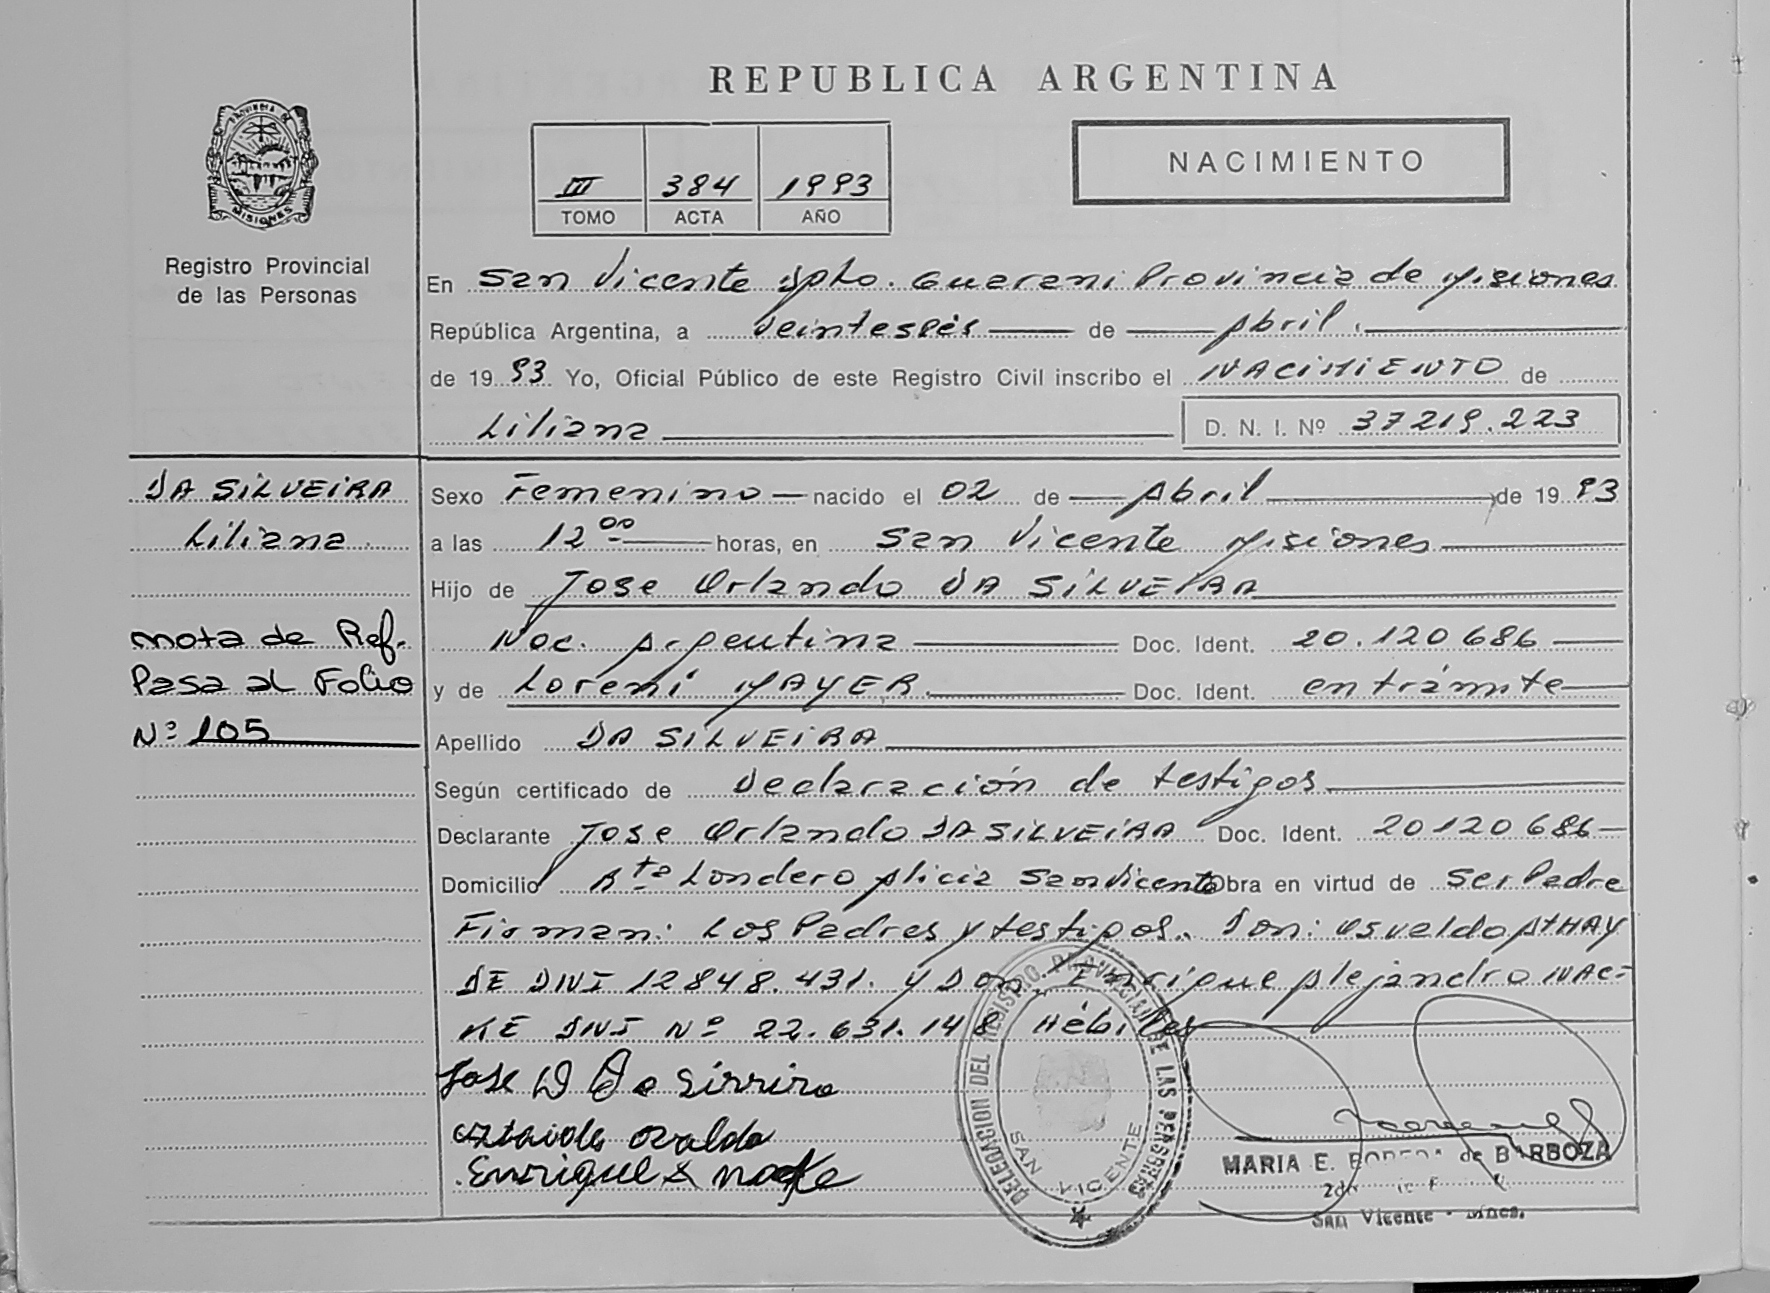 REPUBLICA ARGENTINA
PROVINCIA DE MISIONES
Registro Provincial
de las Personas
III 384 1993
TOMO ACTA AÑO
NACIMIENTO
En San Vicente Dpto. Guarani Provincia de Misiones
República Argentina, a veintesées de Abril.
de 19 93 Yo, Oficial Público de este Registro Civil inscribo el NACIMIENTO de
Liliana D. N. I. Nº 37219.223
DA SILVEIRA
Liliana.
nota de Ref.
Pasa al Folio
Nº 105
Sexo Femenino nacido el 02 de Abril de 19 93
a las 12 00 horas, en San Vicente Misiones
Hijo de Jose Orlando DA SILVEIRA
Nac. Argentina Doc. Ident. 20.120686
y de Loreni MAYER. Doc. Ident. en trámite
Apellido DA SILVEIRA
Según certificado de Declaración de testigos
Declarante Jose Orlando DA SILVEIRA Doc. Ident. 20120686
Domicilio Rta Londero Alicia San Vicente Obra en virtud de Ser Padre
Firman: Los Padres y testigos. Don: Osvaldo ATHAY
DE DNI 12848.431. y Don. Enrique Alejandro NAC-
KE DNI Nº 22.631.148 Hábiles
Jose
Enrique A nacke
DELEGACION DEL REGISTRO PROVINCIAL DE LAS PERSONAS
SAN VICENTE
MARIA E. de BARBOZA
San Vicente - Mnes.